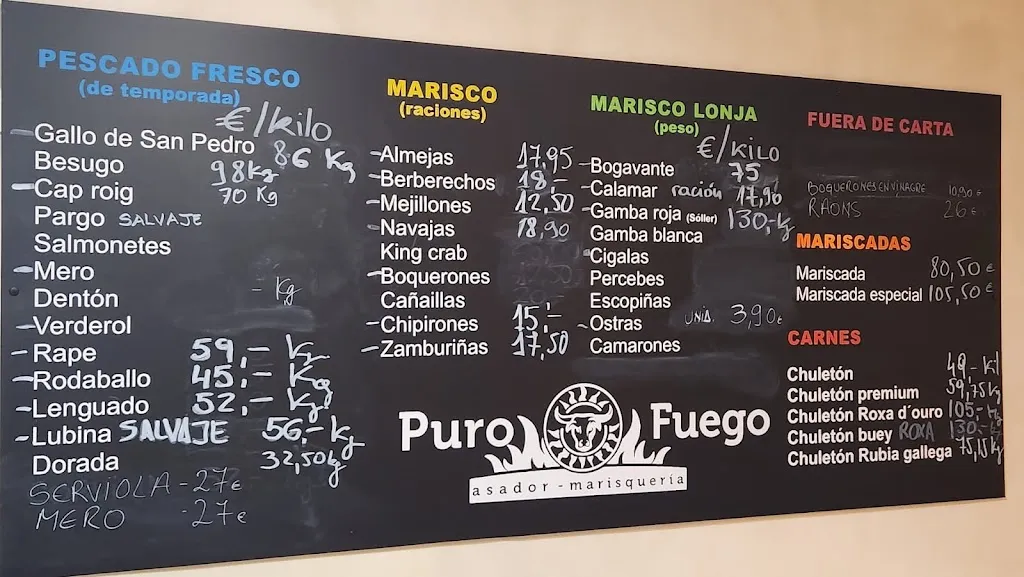 PESCADO FRESCO
(de temporada)
€/kilo
-Gallo de San Pedro 86 Kg
Besugo 98kg
-Cap roig 70 Kg
Pargo SALVAJE
Salmonetes
-Mero
Dentón - Kg
-Verderol
-Rape 59,- Kg
-Rodaballo 45,- Kg
-Lenguado 52,- Kg
-Lubina SALVAJE 56,- kg
Dorada 32,50kg
SERVIOLA -27€
MERO -27€
MARISCO
(raciones)
-Almejas 17,95
-Berberechos 18,-
-Mejillones 12,50
-Navajas 18,90
King crab
-Boquerones
Cañaillas
-Chipirones 15,-
-Zamburiñas 17,50
MARISCO LONJA
(peso)
€/KILO
-Bogavante 75
-Calamar ración 17,96
-Gamba roja (Sóller) 130,-kg
Gamba blanca
-Cigalas
Percebes
Escopiñas
-Ostras UNID. 3,90€
Camarones
FUERA DE CARTA
BOQUERONES EN VINAGRE 10,90€
RAONS 26€
MARISCADAS
Mariscada 80,50€
Mariscada especial 105,50€
CARNES
Chuletón 49,- kl
Chuletón premium 59,75kg
Chuletón Roxa d´ouro 105,- kg
Chuletón buey ROXA 130,-kg
Chuletón Rubia gallega 75,15kg
Puro Fuego
asador - marisquería